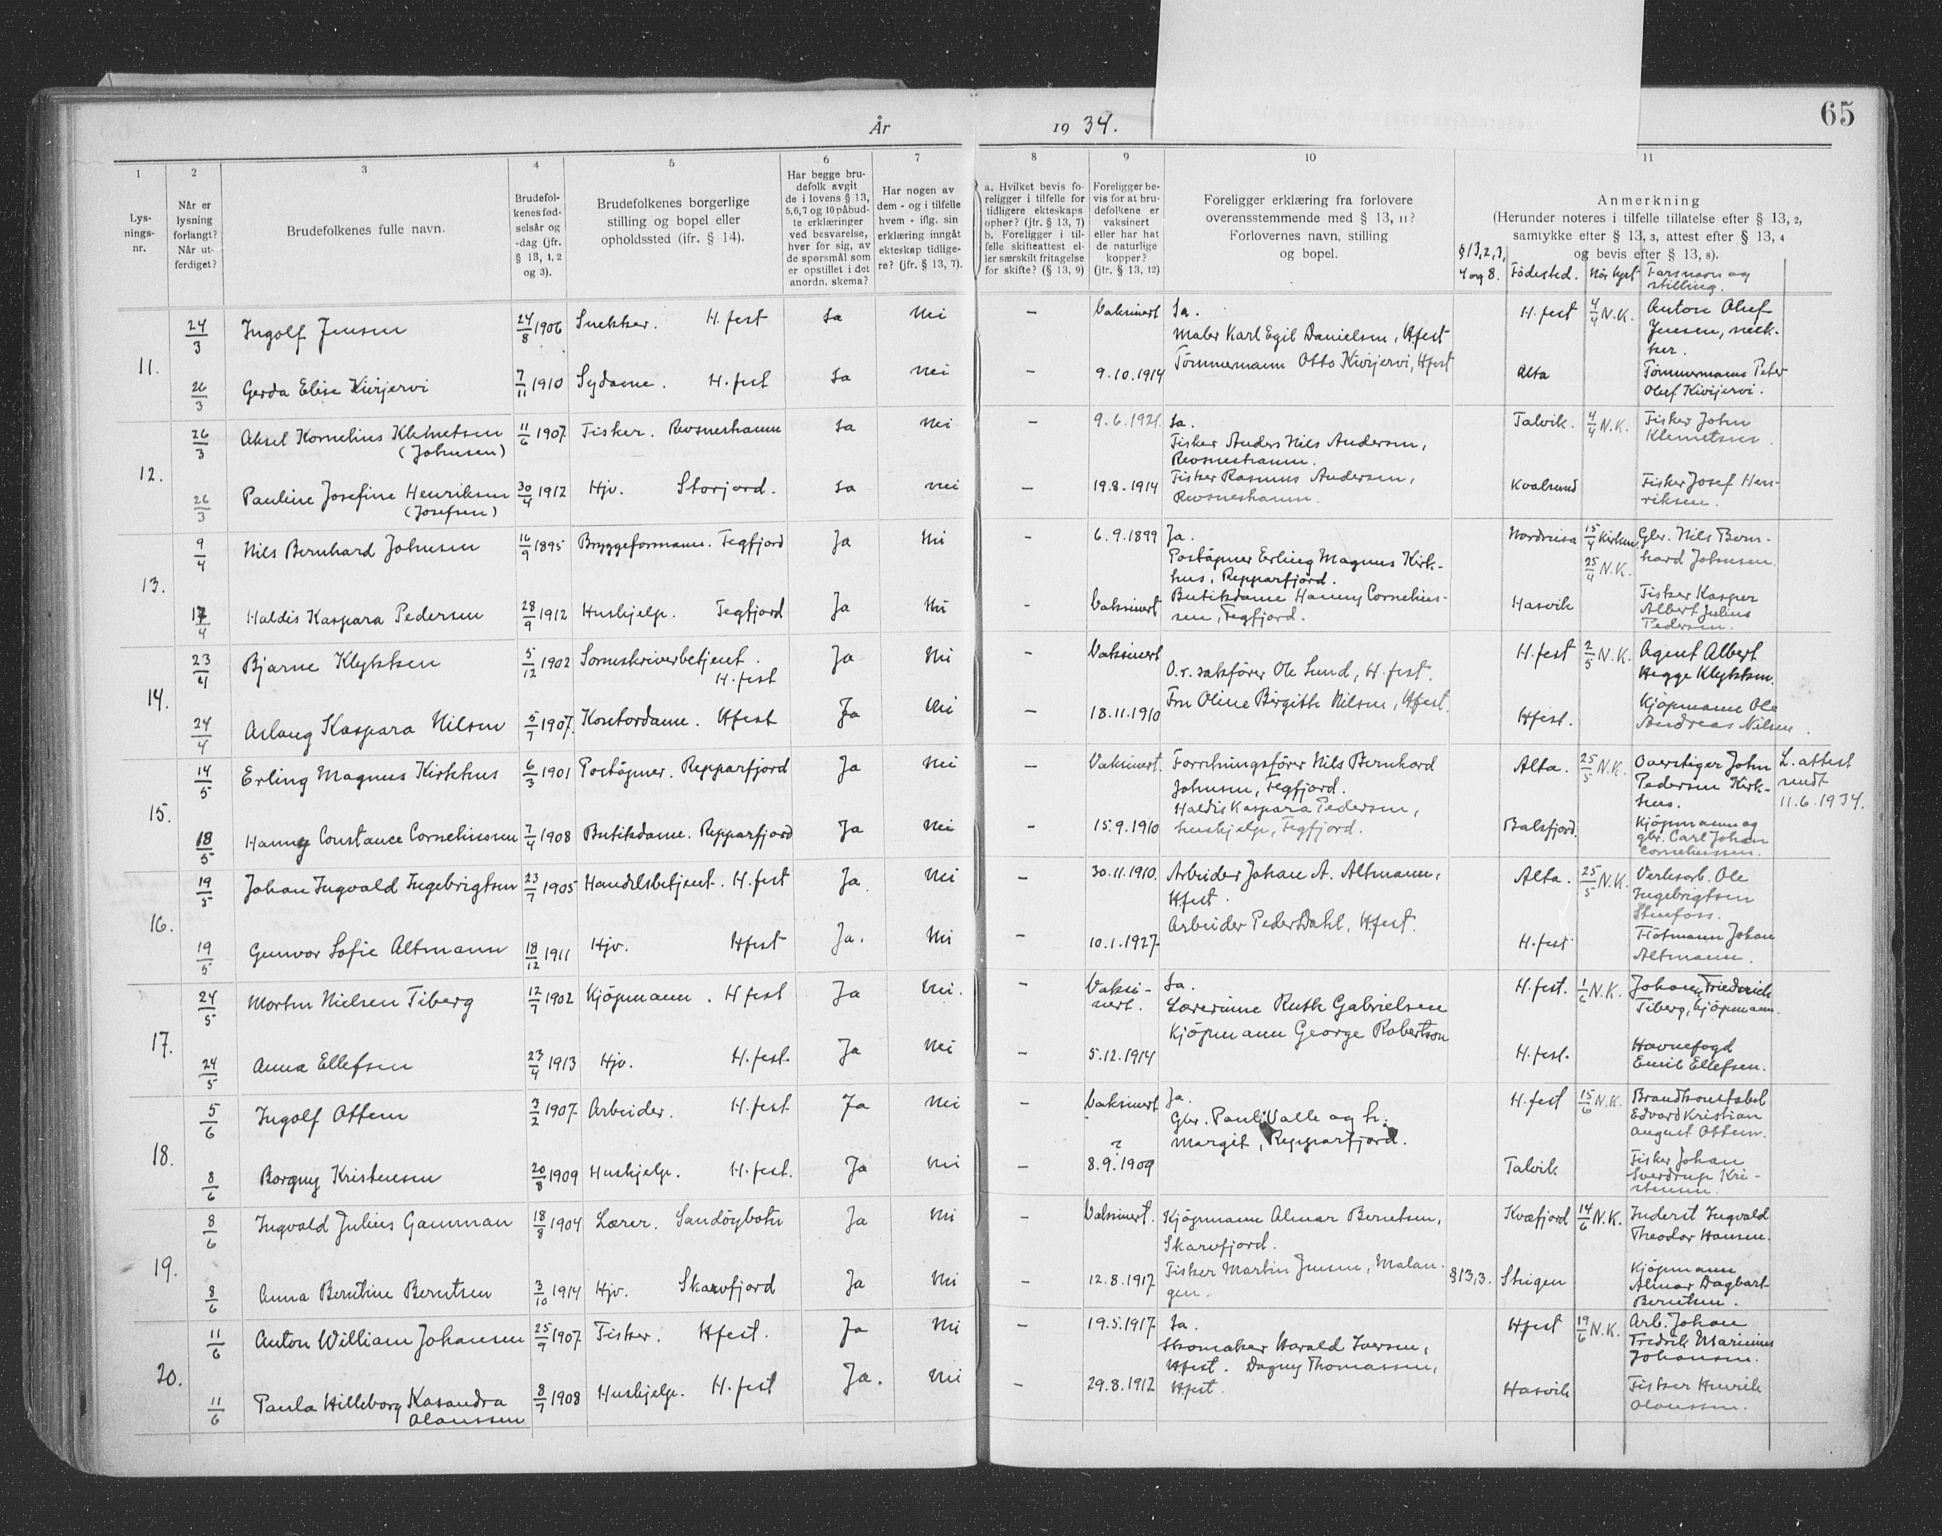 65
År 1934.
1 2 3 4 5 6 7 8 9 10 11
Lys-
nings-
nr.
Når er
lysning
forlangt?
Når ut-
ferdiget?
Brudefolkenes fulle navn.
Brudefol-
kenes fød-
selsår og
-dag (jfr.
§ 13, 1, 2
og 3).
Brudefolkenes borgerlige
stilling og bopel eller
opholdssted (ifr. § 14).
Har begge bru-
defolk avgit
de i lovens § 13,
5,6,7 og 10 påbud-
te erklæringer
ved besvarelse,
hver for sig, av
de spørsmål som
er opstillet i det
anordn. skema?
Har nogen av
dem - og i tilfelle
hvem - iflg. sin
erklæring inngått
ekteskap tidlige-
re? (jfr. § 13, 7).
a. Hvilket bevis fo-
religger i tilfelle for
tidligere ekteskaps
ophør? (jfr. § 13, 7)
b. Foreligger i til-
felle skifteattest el-
ler særskilt fritagelse
for skifte? (§ 13, 9)
Foreligger be-
vis for at bru-
defolkene er
vaksinert
eller har hat
de naturlige
kopper?
(jfr. § 13, 12)
Foreligger erklæring fra forlovere
overensstemmende med § 13, 11?
Forlovernes navn, stilling
og bopel.
Anmerkning
(Herunder noteres i tilfelle tillatelse efter § 13, 2,
samtykke efter § 13, 3, attest efter § 13, 4
og bevis efter § 13, 8).
§ 13, 2, 3,
4 og 8. Födested. Når lyst Farsnavn og
stilling.
11.
24/3 Ingolf Jensen 24/8 1906 Snekker. H.fest Ja Nei — Vaksinert Ja. H.fest 4/4 N.K. Anton Oluf
Maler Karl Egil Danielsen, Hfest Jensen, snek-
ker.
26/3 Gerda Elise Kivijervi 7/11 1910 Sydame. H.fest Ja Nei — 9.10.1914 Tömmermann Otto Kivijervi, Hfest Alta Tömmermann Peter
Oluf Kivijervi.
12.
26/3 Aksel Kornelius Klemetsen 11/6 1907. Fisker. Revsneshamn Ja Nei — 9.6.1921. Ja. Talvik. 4/4 N.K. Fisker John
(Johnsen) Fisker Anders Nils Andersen, Klemetsen.
Revsneshamn.
26/3 Pauline Josefine Henriksen 30/4 1912 Hjv. Storjord. Ja Nei — 19.8.1914 Fisker Rasmus Andersen, Kvalsund Fisker Josef Hen-
(Josefsen) Revsneshamn. riksen.
13.
9/4 Nils Bernhard Johnsen 16/9 1895 Bryggeformann. Fegfjord Ja Nei — 6.9.1899 Ja. Nordreisa 15/4 Kirken. Gbr. Nils Bern-
Poståpner Erling Magnus Kirk- 25/4 N.K. hard Johnsen.
hus, Repparfjord.
17/4 Haldis Kaspara Pedersen 28/9 1912 Hushjelp. Fegfjord Ja Nei — Vaksinert Butikdame Hanny Cornelius- Hasvik Fisker Kasper
sen, Fegfjord. Albert Julius
Pedersen.
14.
23/4 Bjarne Klykken 5/12 1902 Sorenskriverbetjent. Ja Nei — Vaksinert H.fest 2/5 N.K. Agent Albert
H.fest O.r. sakförer Ole Lund, H.fest. Hegge Klykken.
24/4 Aslaug Kaspara Nilsen 5/7 1907. Kontordame. Hfest Ja Nei — 18.11.1910 Fru Oline Birgithe Nilsen, Hfest. Hfest. Kjöpmann Ole
Andreas Nilsen.
15.
14/5 Erling Magnus Kirkhus 6/3 1901 Poståpner. Repparfjord Ja Nei — Vaksinert. Forretningsförer Nils Bernhard Alta. 25/5 N.K. Overstiger John L. attest
Johnsen, Fegfjord. Pedersen Kirk- sendt
hus. 11.6.1934.
Haldis Kaspara Pedersen,
18/5 Hanny Constance Corneliussen 7/4 1908 Butikdame. Repparfjord Ja Nei — 15.9.1910 hushjelp, Fegfjord. Balsfjord. Kjöpmann og
gbr. Carl Johan
Corneliussen.
16.
19/5 Johan Ingvald Ingebrigtsen 23/7 1905 Handelsbetjent. H.fest Ja. Nei — 30.11.1910. Arbeider Johan A. Altmann, Alta. 25/5 N.K. Verksarb. Ole
Hfest. Ingebrigtsen

19/5 Gunvor Sofie Altmann 18/12 1911 Hjv. Hfest Ja. Nei — 10.1.1927. Arbeider Peder Dahl, Hfest. H.fest Johan
Altmann.
17.
24/5 Morten Nielsen Tiberg 12/7 1902 Kjöpmann. H.fest Ja Nei. — Vaksi- Ja. H.fest. 1/6 N.K. Johan Friederich
nert. Lærerinne Ruth Gabrielsen Tiberg, kjöpmann.
Kjöpmann George Robertson
24/5 Anna Ellefsen 23/4 1913 Hjv. H.fest. Ja Nei — 5.12.1914 H.fest. Havnefogd
Emil Ellefsen.
18.
5/6 Ingolf Ottem 3/2 1907. Arbeider. H.fest Ja Nei — Vaksinert Ja. H.fest 15/6 N.K. Brandkonstabel
Gbr. Paul Valle og h. Edvard Kristian
Margit, Repparfjord. August Ottem.
8/6 Borgny Kristensen 20/8 1909 Hushjelp. H.fest. Ja Nei — 8.9.1909 ? Talvik Fisker Johan
Sverdrup Kri-
stensen.
19.
8/6 Ingvald Julius Gamman 18/8 1904 Lærer. Sandöybotn Ja Nei — Vaksinert. Kjöpmann Almar Berntsen, Kvæfjord 14/6 N.K. Inderst Ingvald
Skarvfjord. Theodor Hansen.
8/6 Anna Berntine Berntsen 3/10 1914 Hjv. Skarvfjord Ja Nei — 12.8.1917 Fisker Martin Jensen, Malan- § 13,3. Kjöpmann
gen. Almar Dagbart
Berntsen.
20.
11/6 Anton William Johansen 25/9 1907 Fisker. Hfest. Ja Nei — 19.5.1917 Ja. Hfest 19/6 N.K. Arb. Johan
Skomaker Harald Iversen, Fredrik Marinius
Hfest. Dagny Thomassen, Johansen.
11/6 Paula Hilleborg Kasandra 8/7 1908 Hushjelp. H.fest Ja. Nei — 29.8.1912 Hfest. Hasvik Fisker Henrik
Olaussen Olaussen.